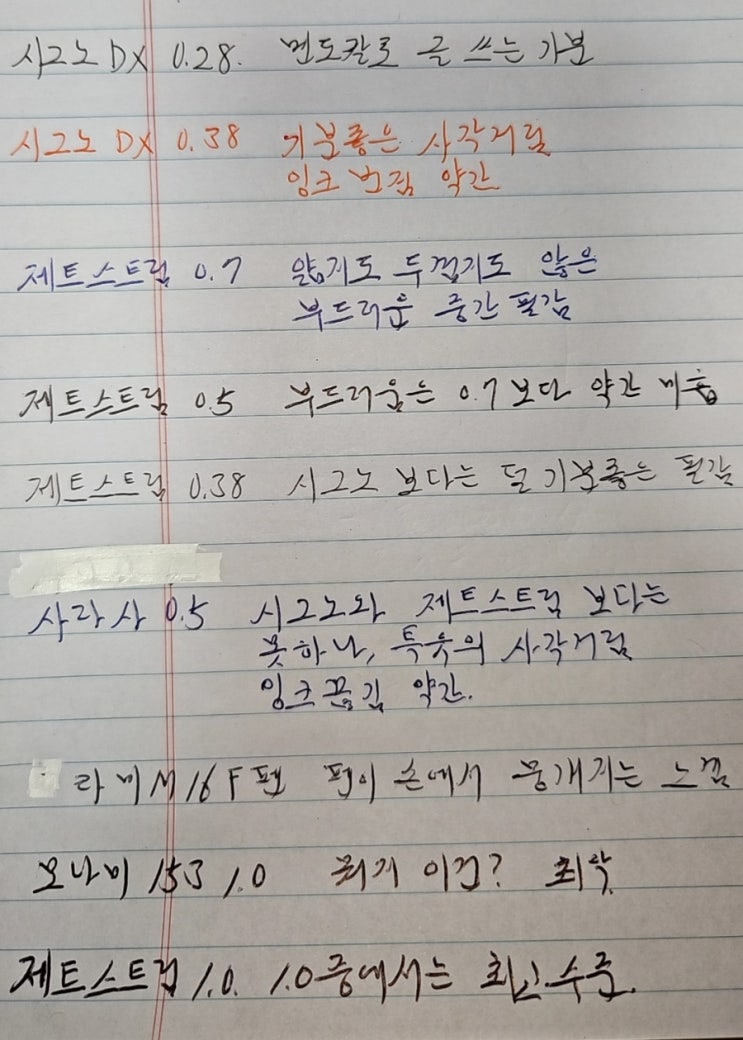 시그노 DX 0.28. 면도칼로 글 쓰는 기분
시그노 DX 0.38 기분좋은 사각거림
잉크 번짐 약간
제트스트림 0.7 얇지도 두껍지도 않은
부드러운 중간 필감
제트스트림 0.5 부드러움은 0.7 보다 약간 미흡
제트스트림 0.38 시그노 보다는 덜 기분좋은 필감
사라사 0.5 시그노와 제트스트림 보다는
못하나, 특유의 사각거림
잉크끊김 약간.
라미 M16 F 펜 펜이 손에서 뭉개지는 느낌
모나미 153 1.0 뭐지 이건? 최악
제트스트림 1.0. 1.0중에서는 최고수준.